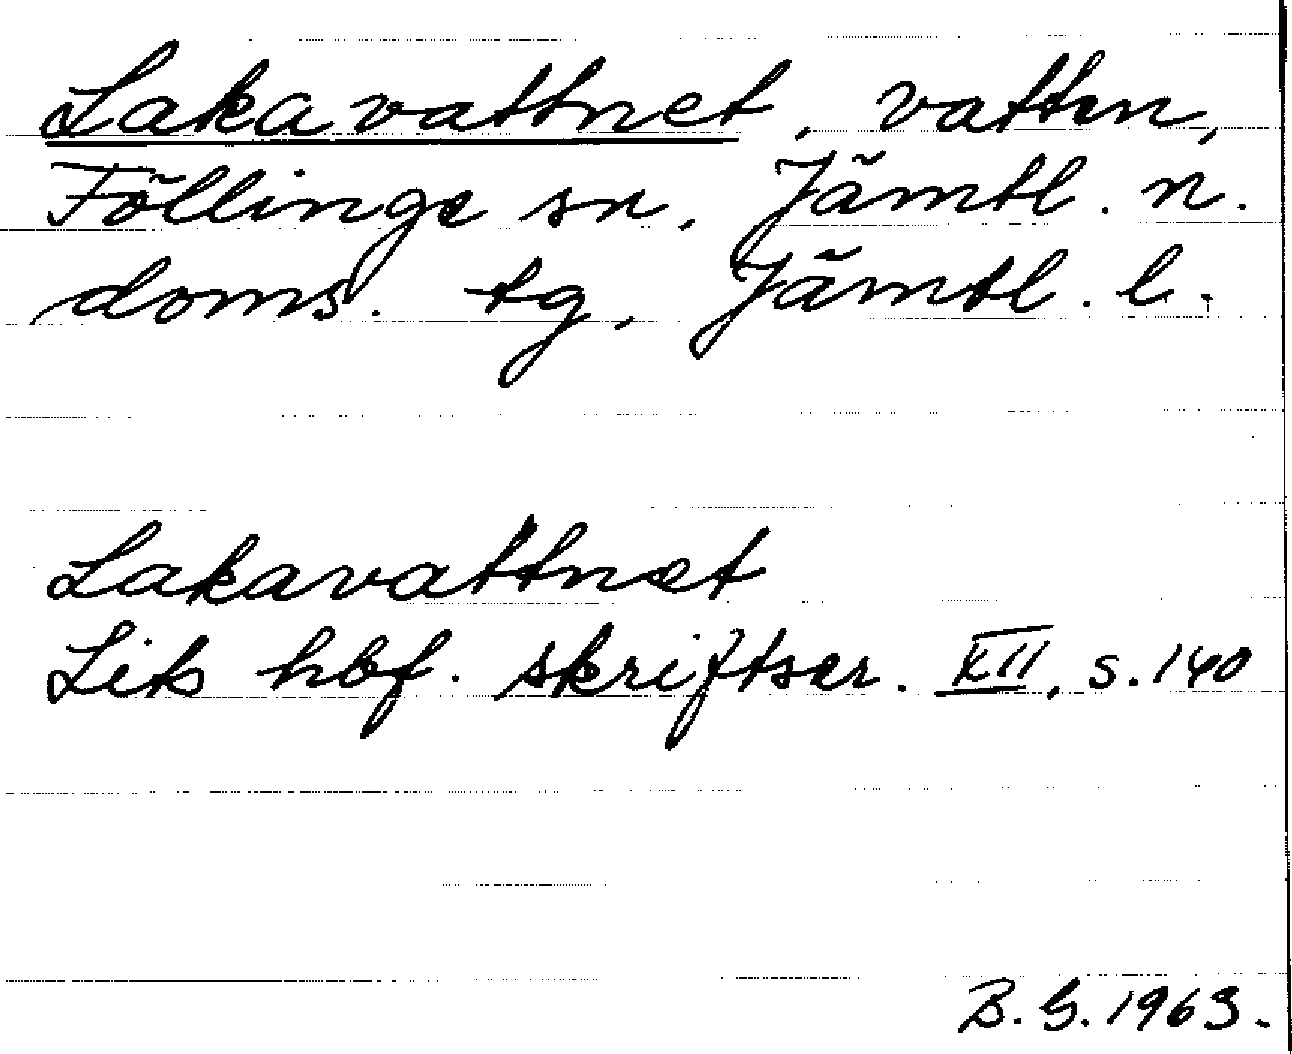 Lakavattnet, vatten,
Föllinge sn, Jämtl. n.
doms. tg, Jämtl. l.
Lakavattnet
Lits hbf. skriftser. XII, s. 140
B. G. 1963.